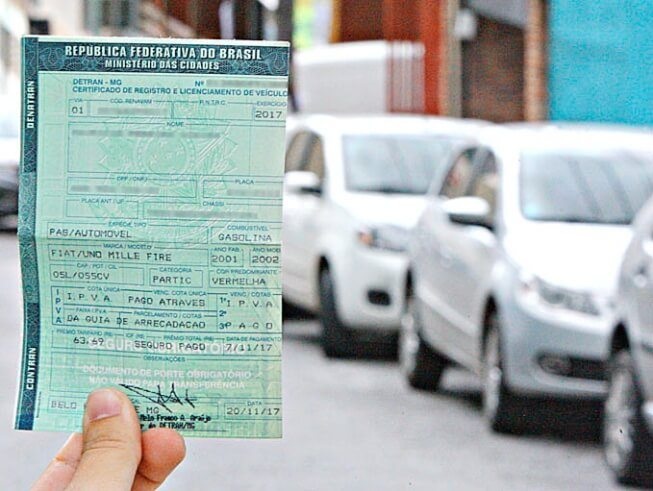 REPÚBLICA FEDERATIVA DO BRASIL
MINISTÉRIO DAS CIDADES
DENATRAN
DETRAN - MG Nº
CERTIFICADO DE REGISTRO E LICENCIAMENTO DE VEÍCULO
VIA CÓD. RENAVAM R.N.T.R.C. EXERCÍCIO
01 2017
NOME
CPF / CNPJ PLACA
PLACA ANT / UF CHASSI
ESPÉCIE TIPO COMBUSTÍVEL
PAS/AUTOMOVEL GASOLINA
MARCA / MODELO ANO FAB. ANO MOD
FIAT/UNO MILLE FIRE 2001 2002
CAP / POT / CIL CATEGORIA COR PREDOMINANTE
05L/055CV PARTIC VERMELHA
COTA ÚNICA VENC. COTA ÚNICA VENC. / COTAS
IPVA I.P.V.A PAGO ATRAVES 1ª I.P.V.A
PARCELAMENTO / COTAS 2ª
DA GUIA DE ARRECADACAO 3ª P A G O
PRÊMIO TARIFÁRIO (R$) PRÊMIO TOTAL (R$) DATA DE PAGAMENTO
63,69 SEGURO PAGO 7/11/17
OBSERVAÇÕES
DOCUMENTO DE PORTE OBRIGATÓRIO
NÃO VÁLIDO PARA TRANSFERÊNCIA
CONTRAN
DATA
BELO MG 20/11/17
Melo Franco A. Araújo
do DETRAN/MG